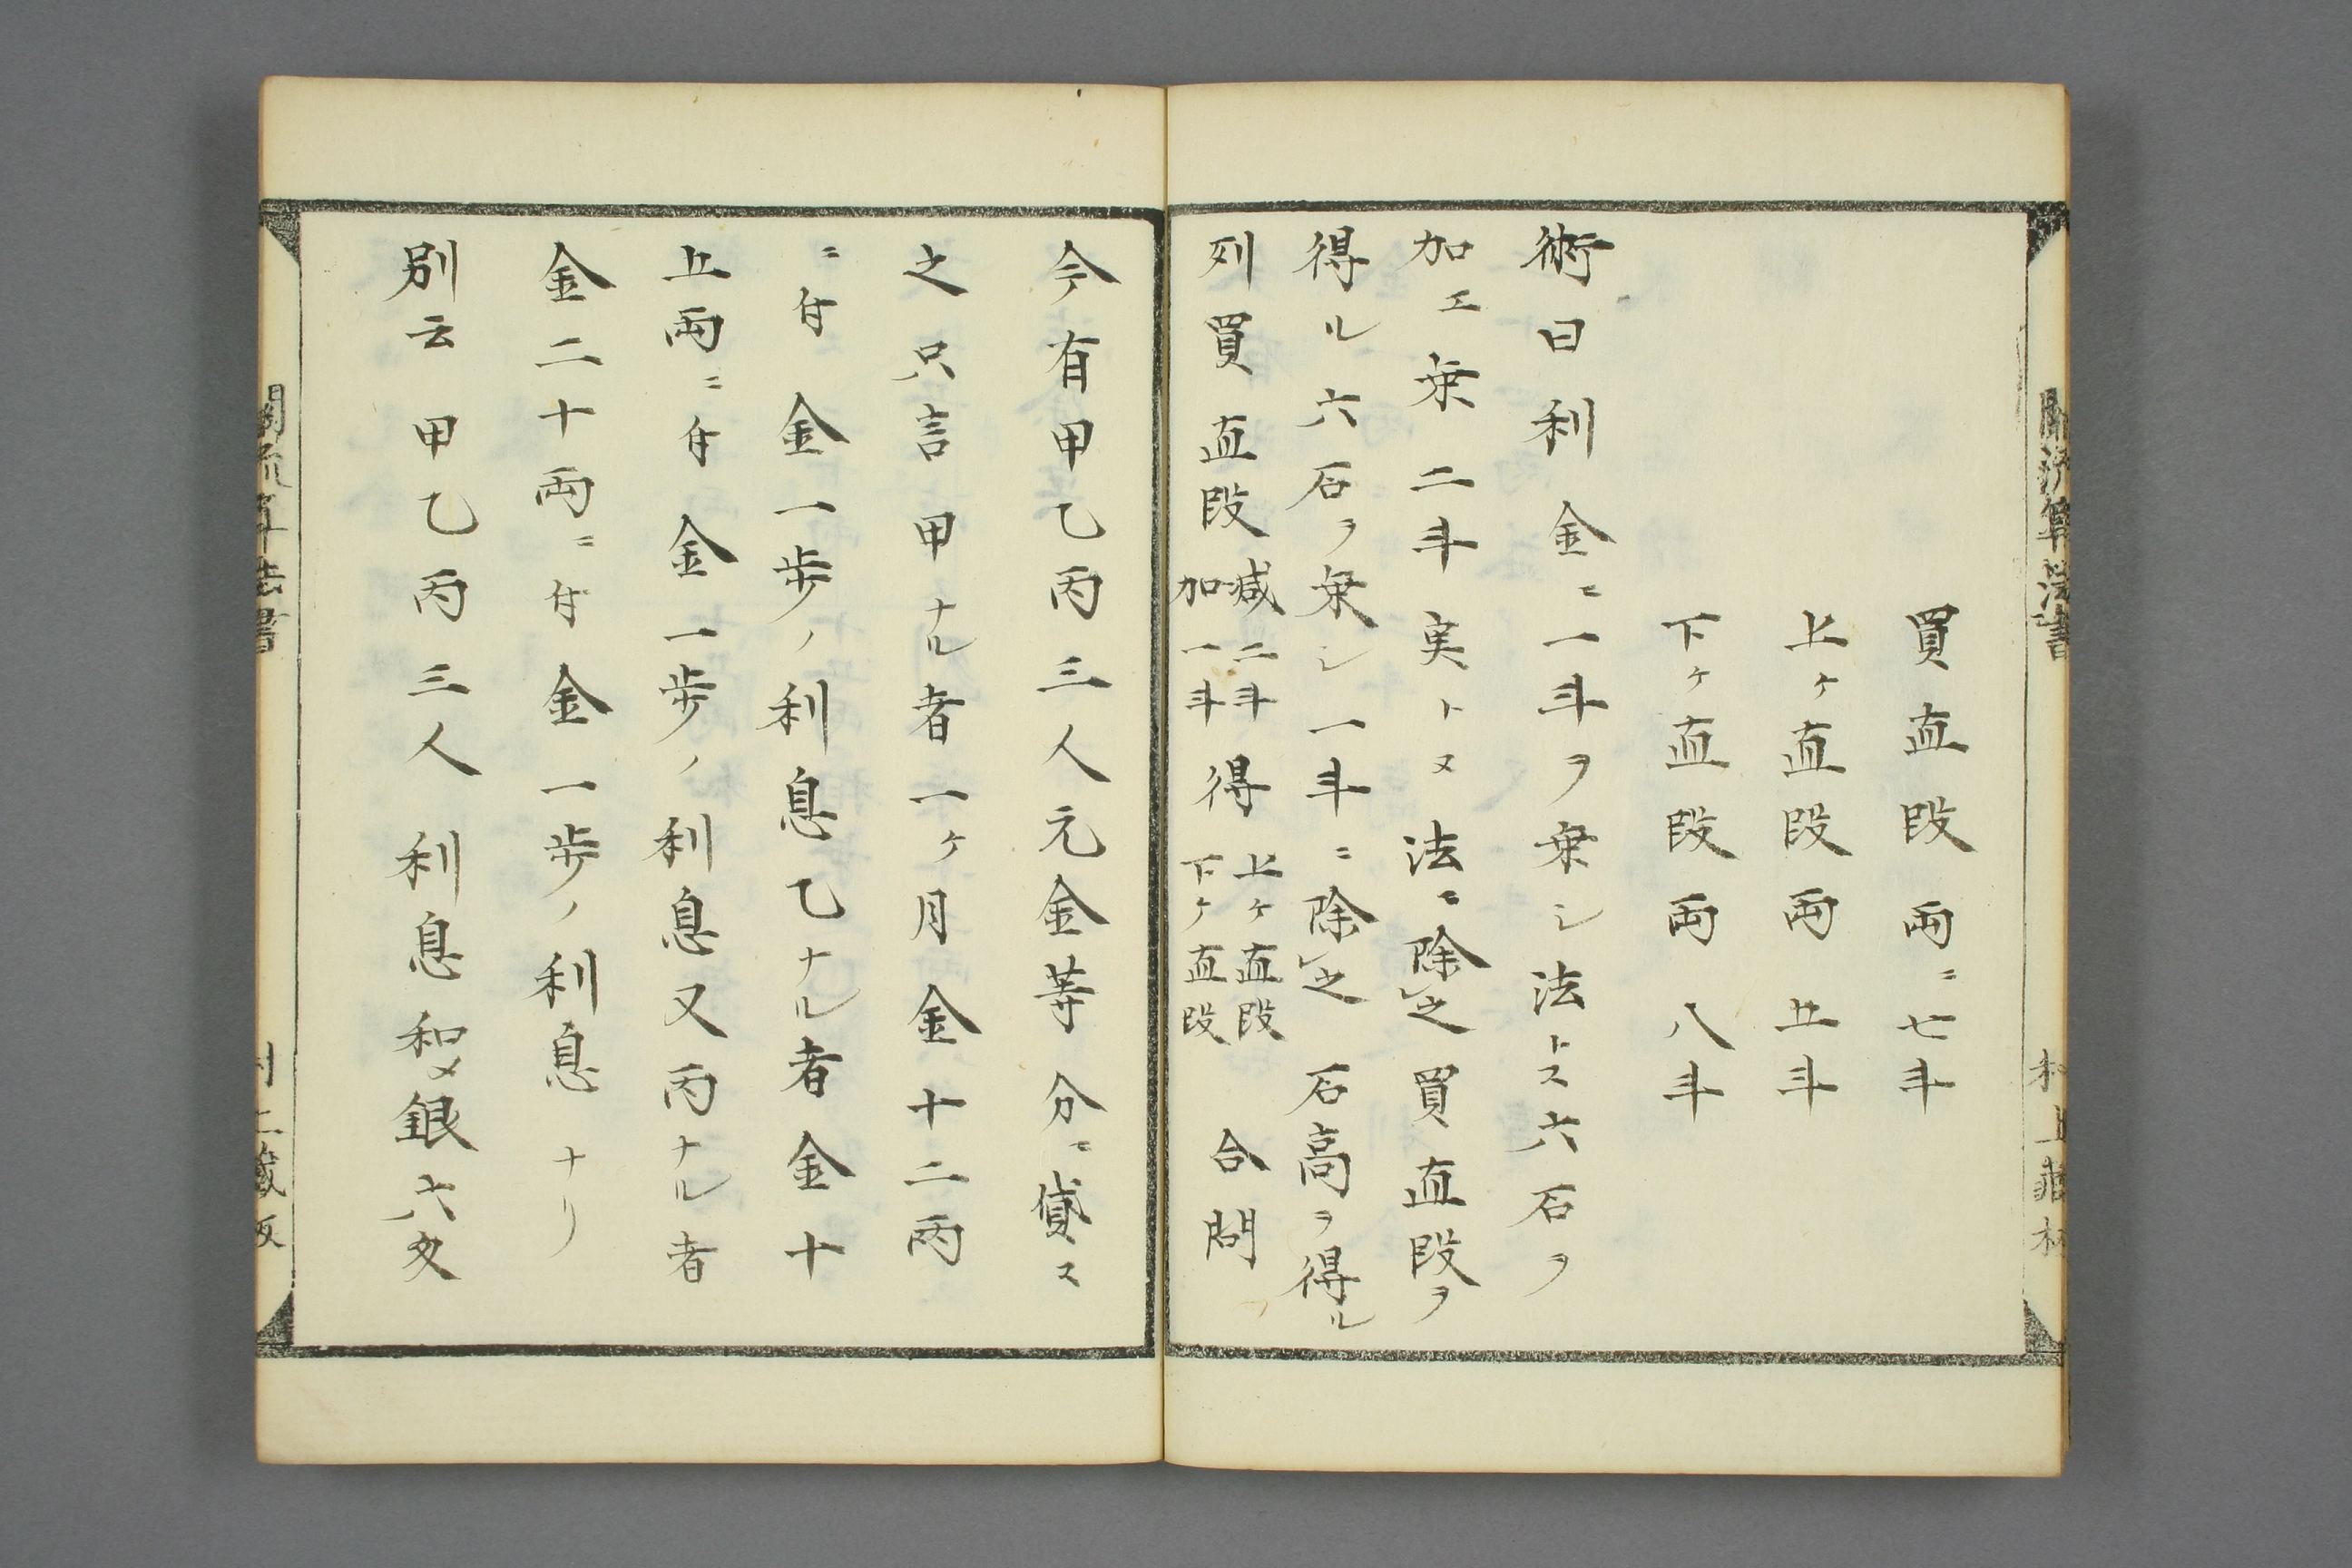 買直段両ニ七斗
上ケ直段両五斗
下ケ直段両八斗
術曰利金ニ一斗ヲ乗シ法トス六石ヲ
加エ乗二斗実トヌ法ニ除之買直段ヲ
得ル六石ヲ乗シ一斗ニ除之石高ヲ得ル
列買直段減二斗加一斗得上ケ直段下ケ直段合問
今有甲乙丙三人元金等分ニ貸ス
之只言甲ナル者一ケ月金十二両
ニ付金一歩ノ利息乙ナル者金十
五両ニ付金一歩ノ利息又丙ナル者
金二十両ニ付金一歩ノ利息ナリ
別云甲乙丙三人利息和〆銀六匁
関流算法書